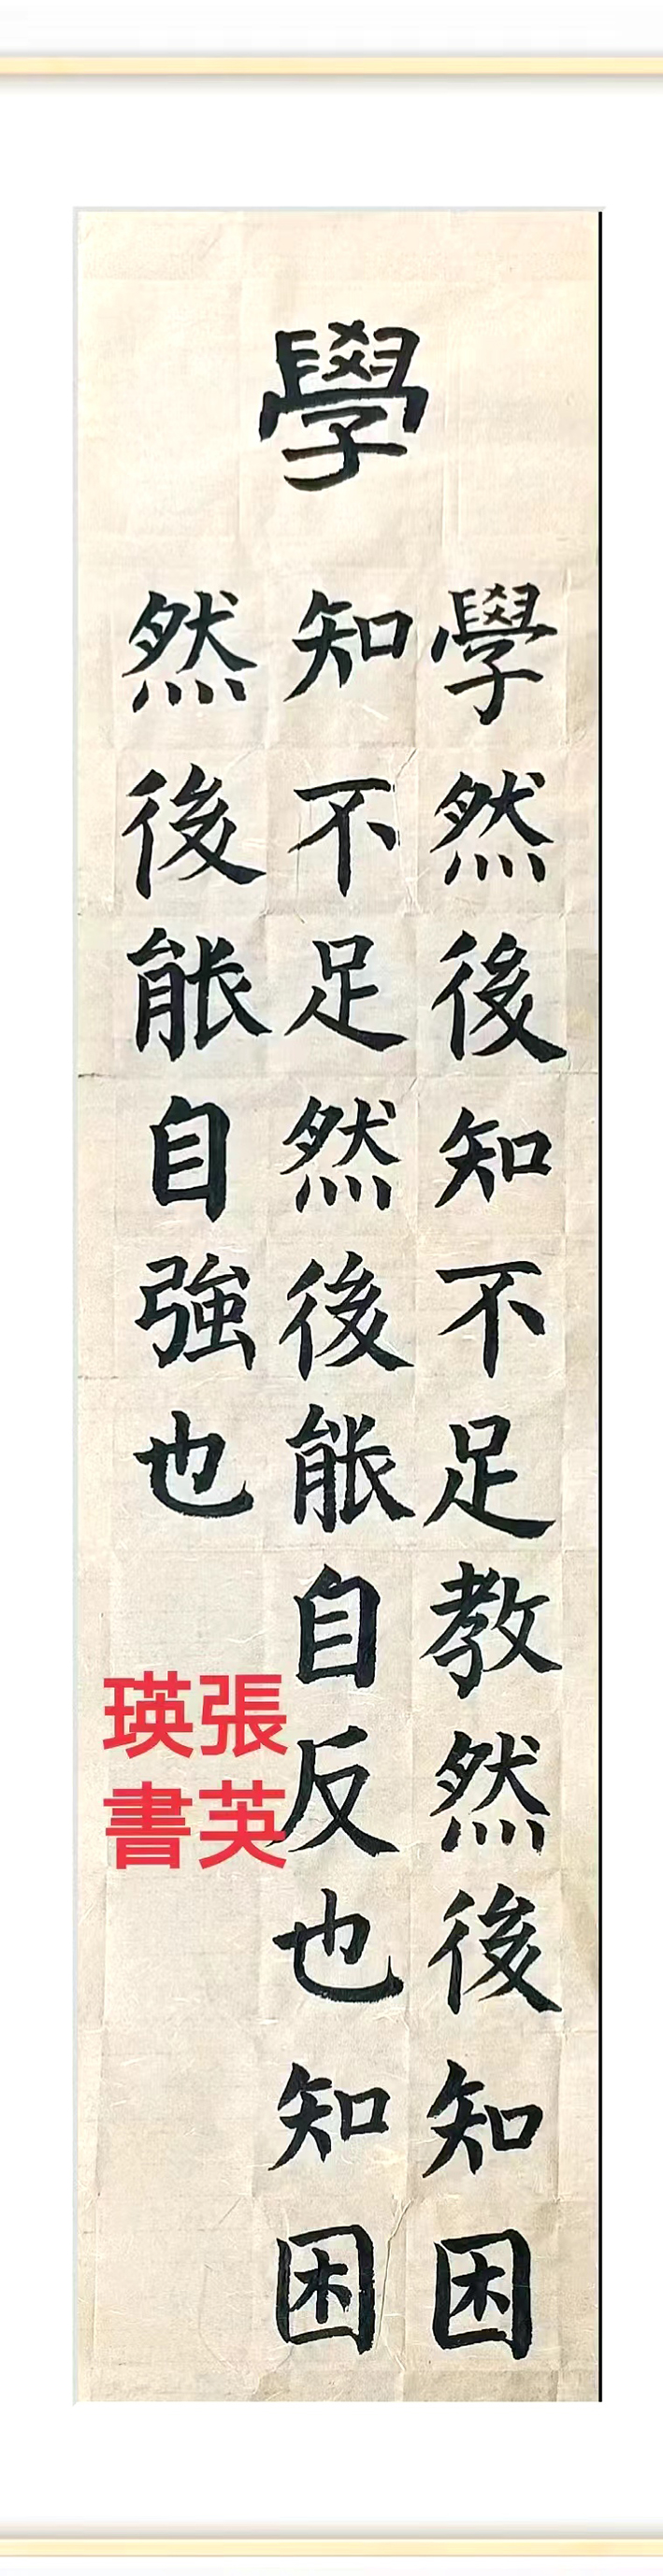 學
學然後知不足教然後知困
知不足然後能自反也知困
然後能自強也
張英
瑛書